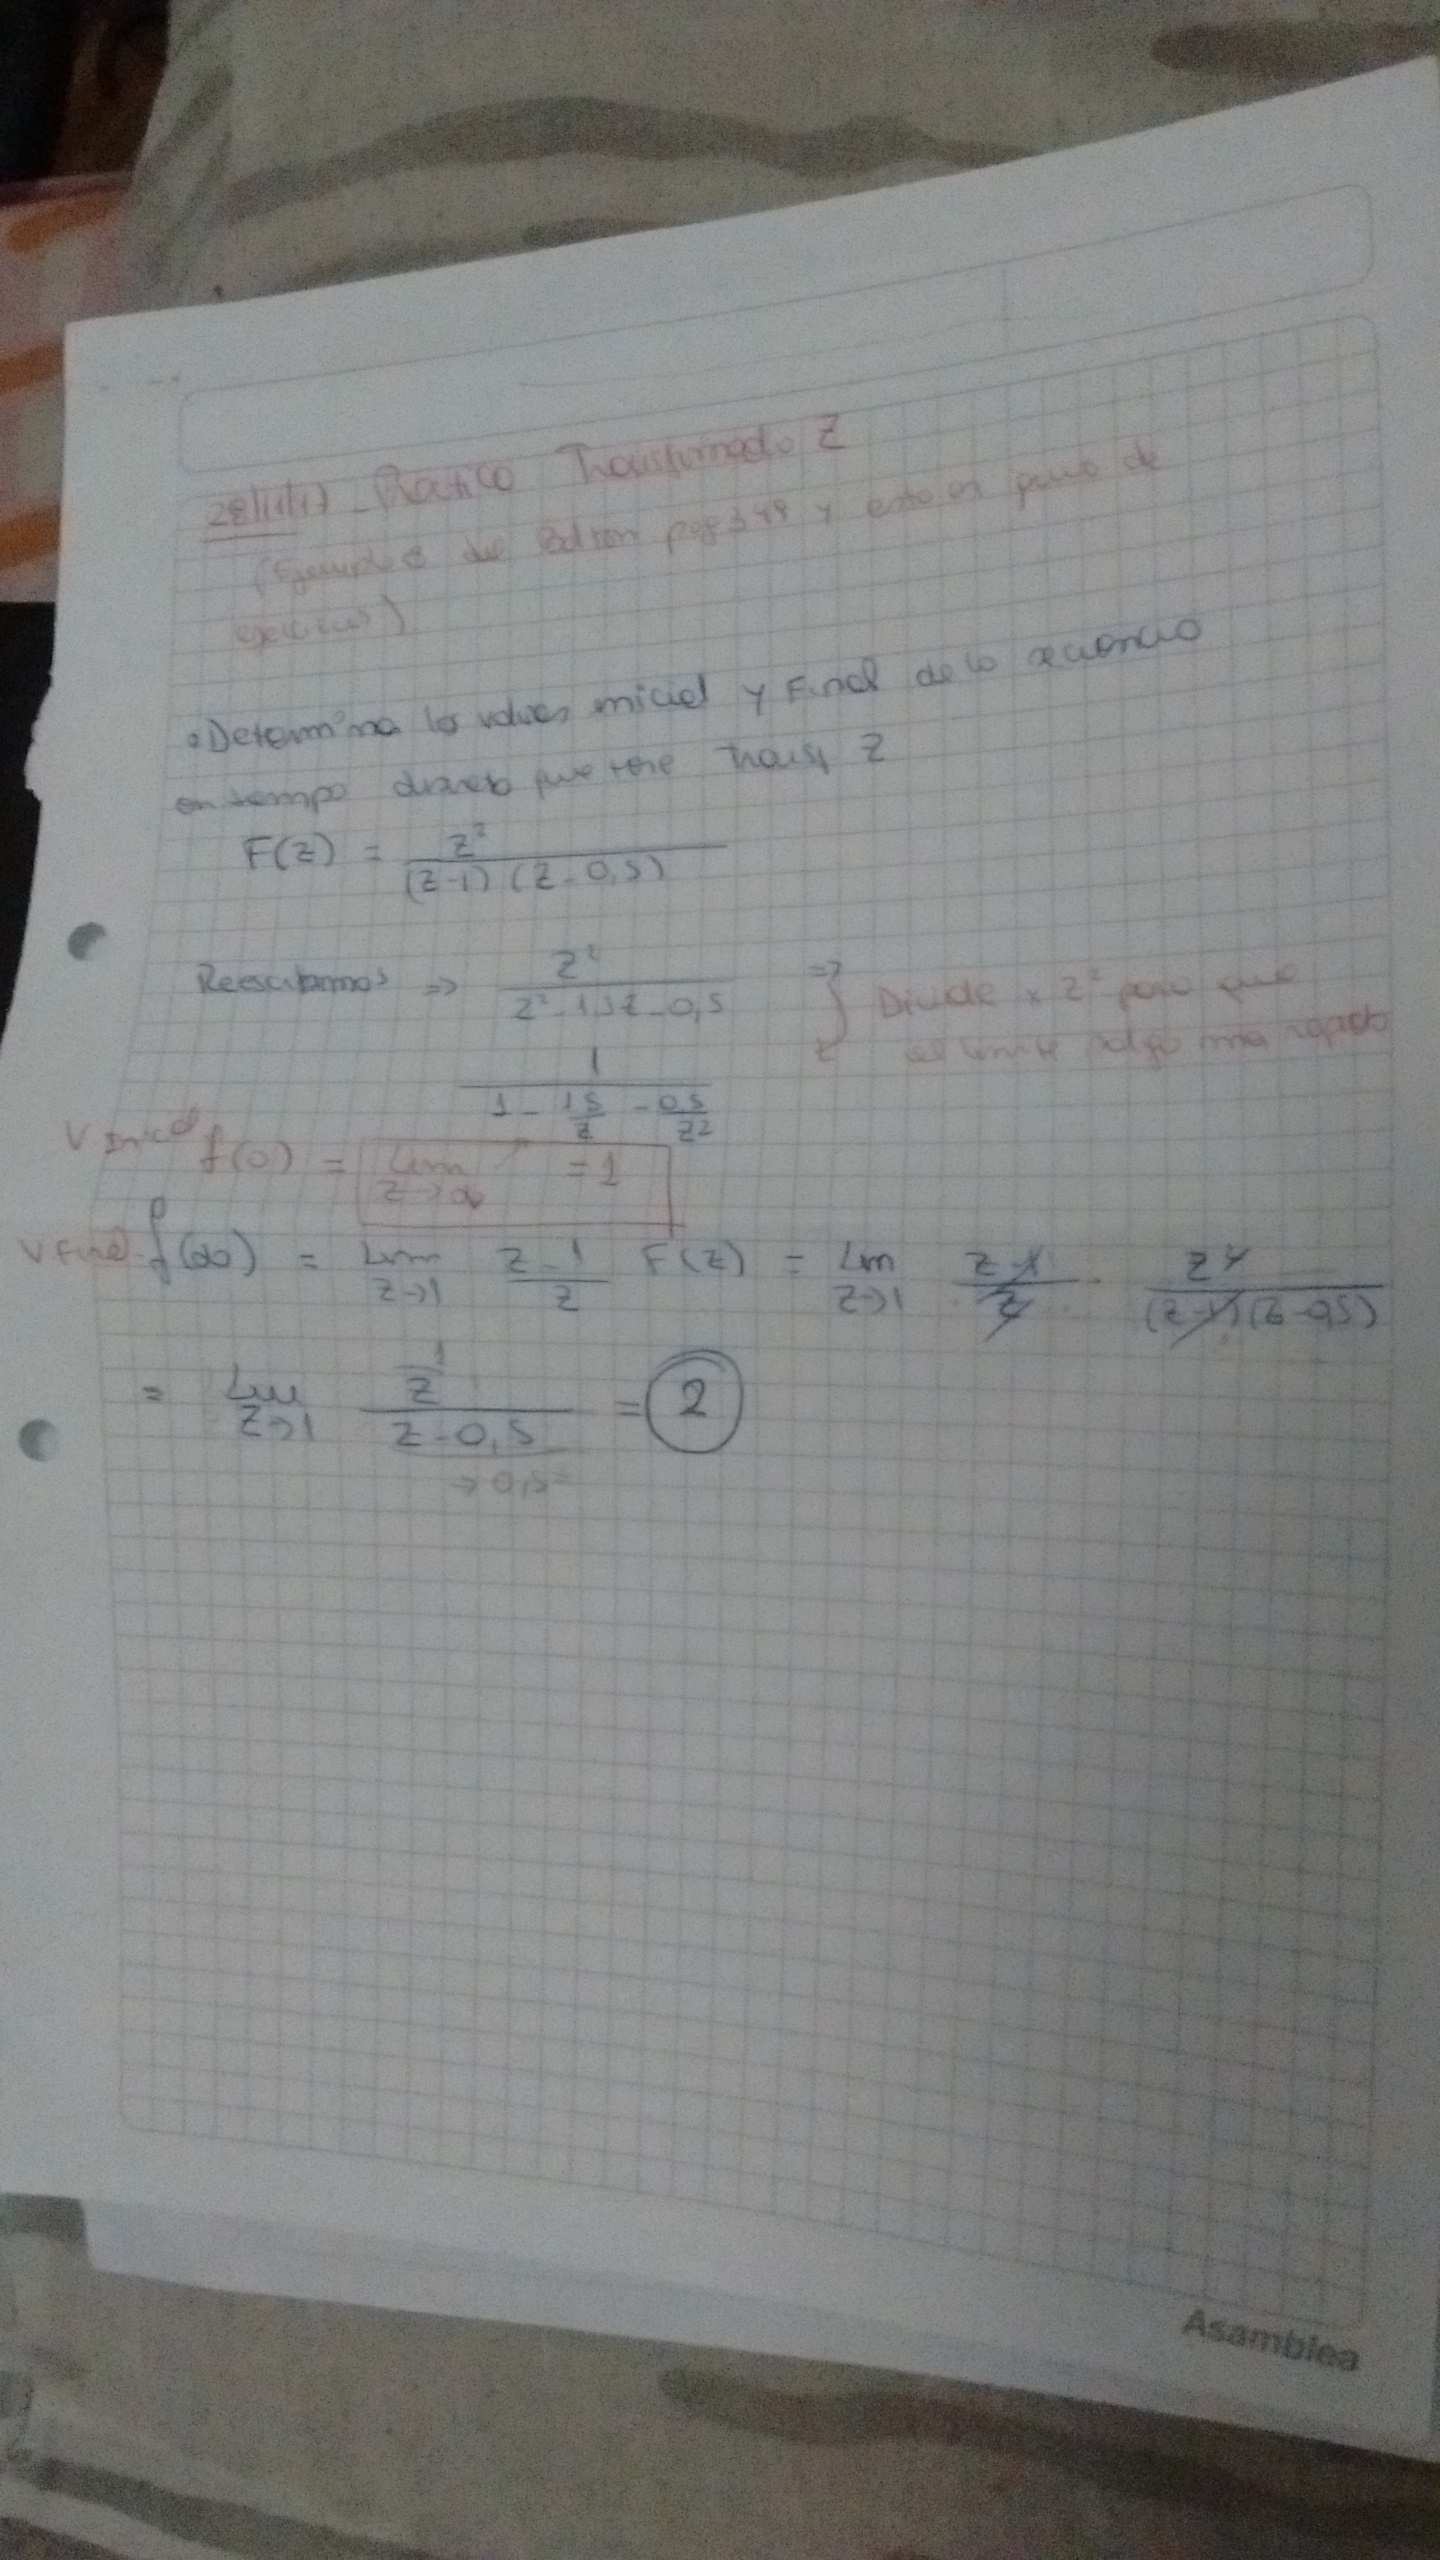 28/11/17 - Practico Transformada Z
(Ejemplo 8 del pag 349 y este es de
ejercicios)
• Determina los valores inicial y Final de la secuencia
en tiempo discreto que tiene Transf Z
F(Z) = Z² / (Z-1) (Z-0,5)
Reescribimos => Z² / Z² - 1,5Z - 0,5 => Divide x Z² para que
1 / 1 - 1,5/Z - 0,5/Z² el limite salga mas rapido
V Inicial f(0) = Lim Z→∞ = 1
V Final f(∞) = Lim Z→1 Z-1 / Z F(Z) = Lim Z→1 Z-1 / Z · Z² / (Z-1)(Z-0,5)
= Lim Z→1 Z / Z-0,5 = 2
→ 0,5
Asamblea